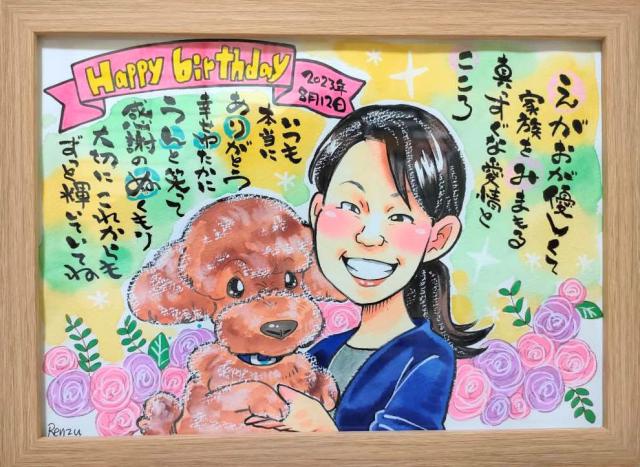 Happy birthday
2023年
8月12日
えがおが優しくて
家族をみまもる
真っすぐな愛情と
こころ
いつも
本当に
ありがとう
幸せゆたかに
うんと笑って
感謝のぬくもり
大切にこれからも
ずっと輝いていてね
Renzu